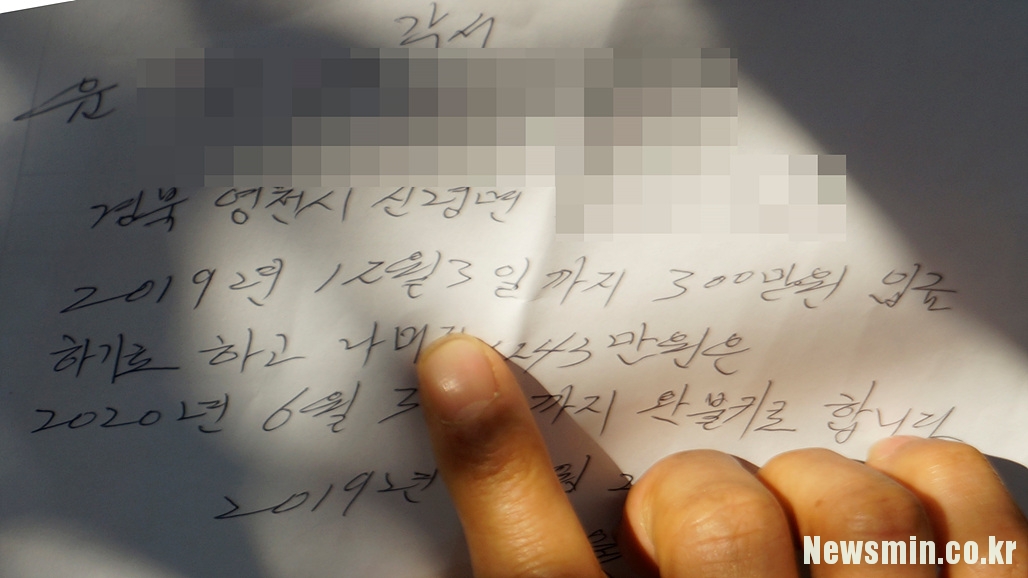 각서
윤
경북 영천시 신령면
2019년 12월 3일까지 300만원 입금
하기로 하고 나머지 243만원은
2020년 6월 3 까지 완불키로 합니다
2019년 월
Newsmin.co.kr